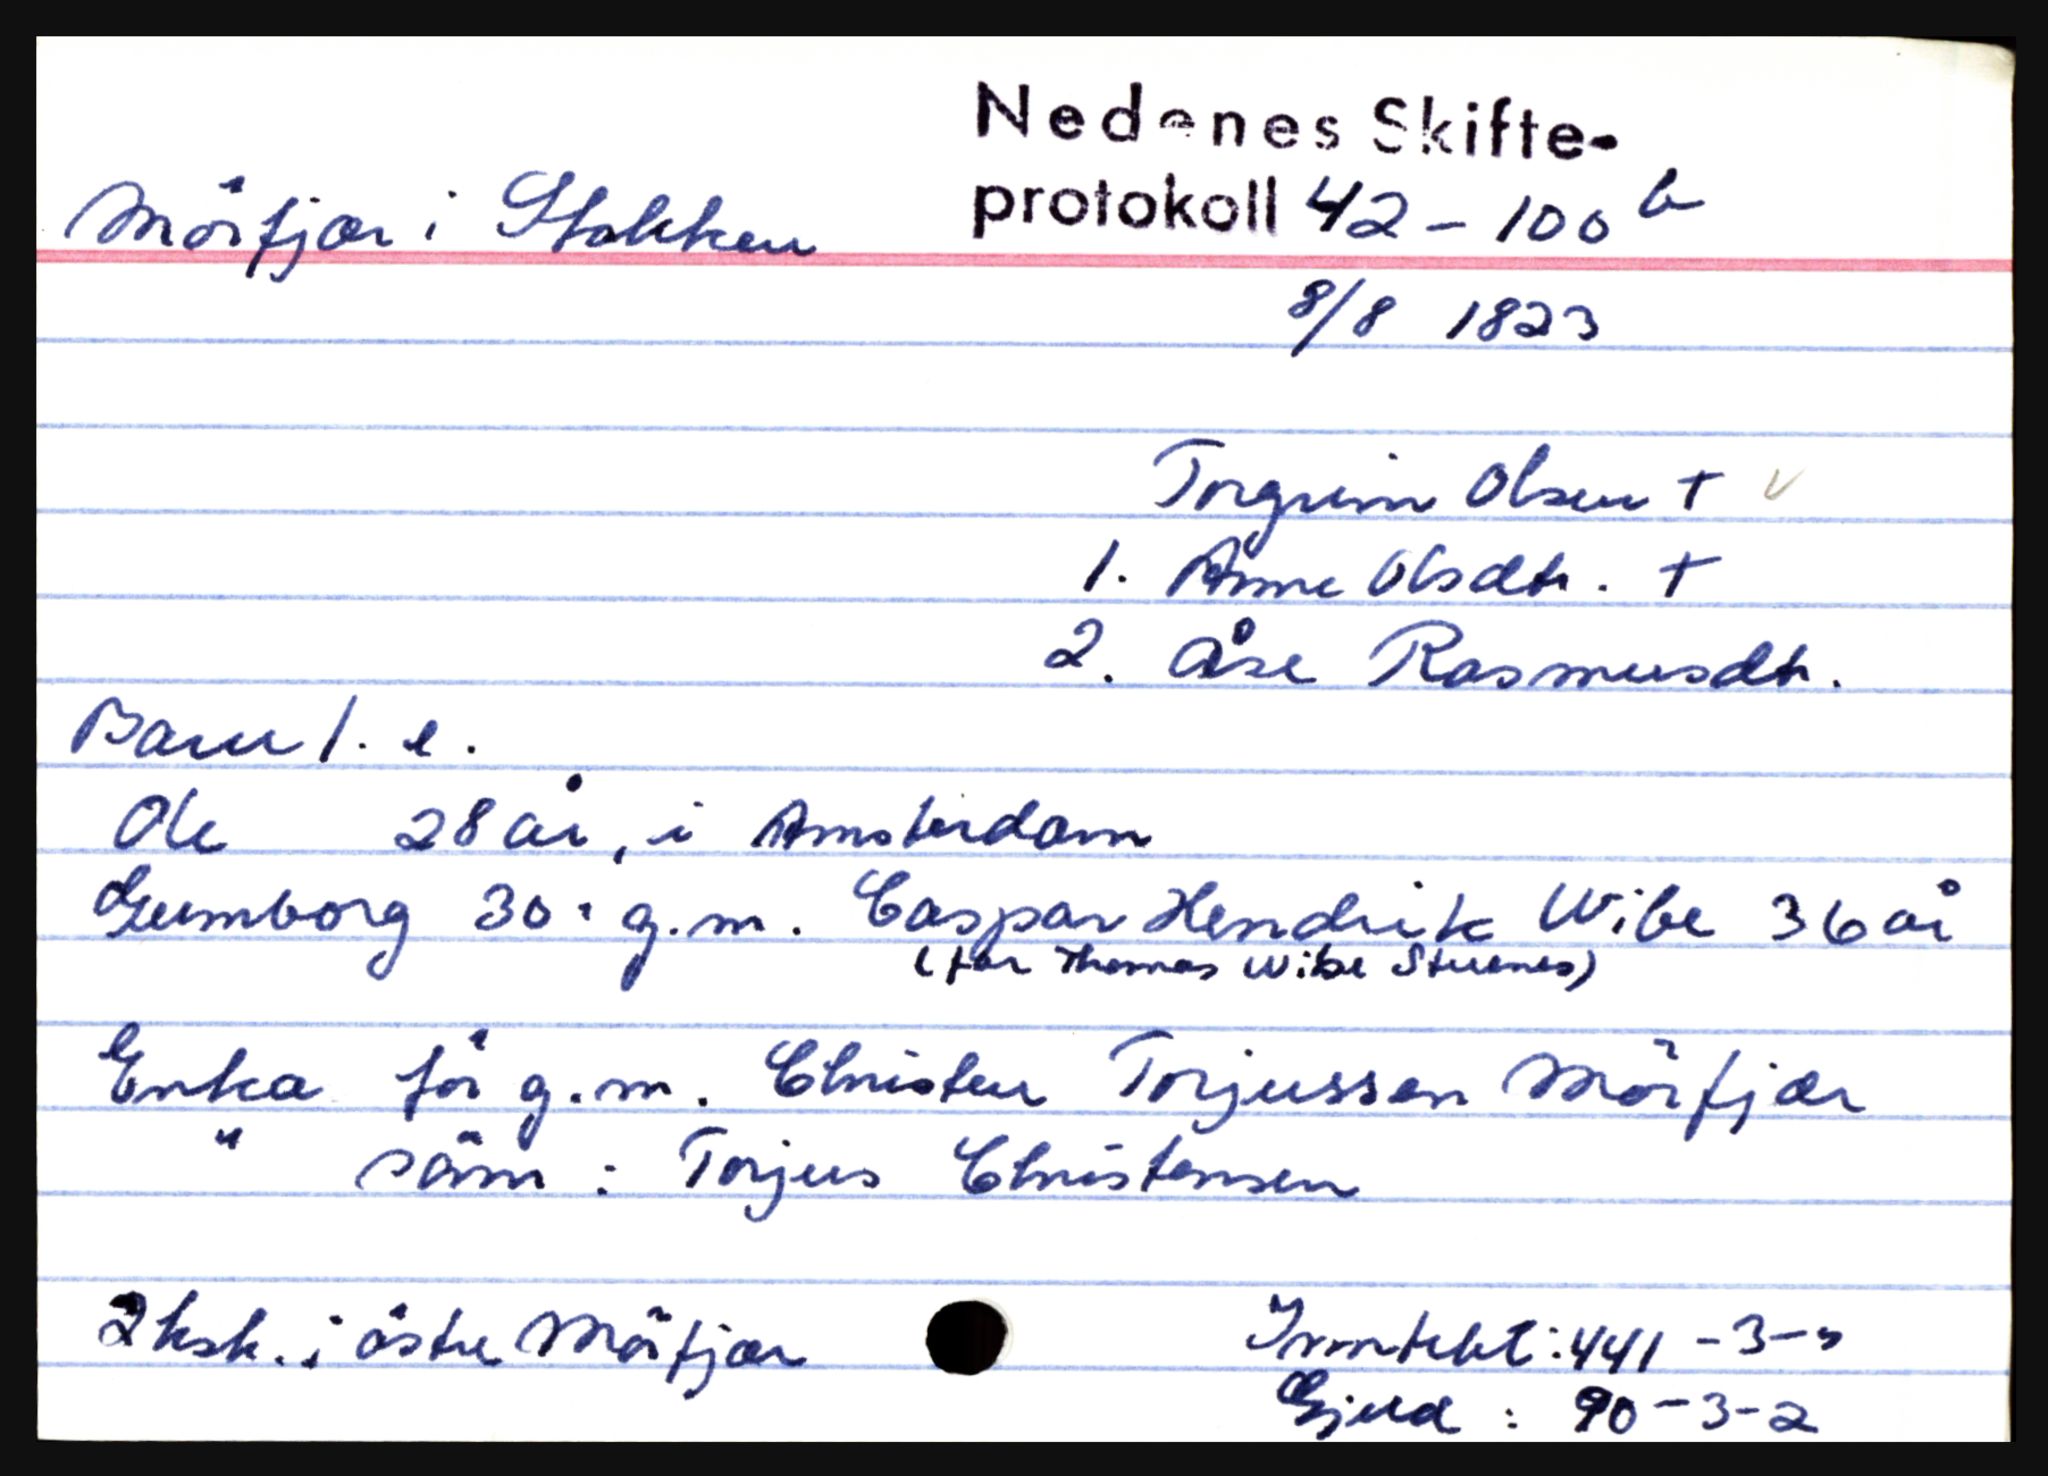 Nedenes Skifte-
Mörfjær i Stokken protokoll 42 - 100 b
8/8 1823
Torgrim Olsen + v
1. Anne Olsdtr. +
2. Åse Rasmusdtr.
Barn 1. e.
Ole 28 år, i Amsterdam
Gumborg 30 " g.m. Caspar Hendrik Wibe 36 år
(far Thomas Wibe Stuenes)
Enka för g.m. Christen Torjussen Mörfjær
" sönn : Torjus Christensen
2 hsk. i östre Mörfjær Inntekt : 441 - 3 - "
Gjeld : 90 - 3 - 2